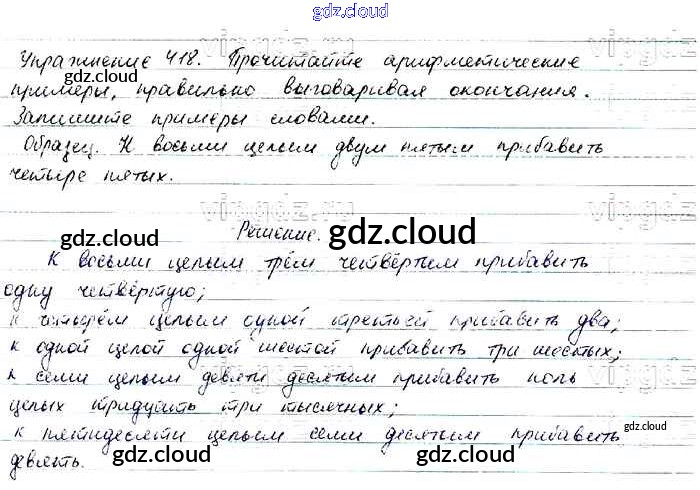 gdz.cloud
Упражнение 418. Прочитайте арифметические
gdz.cloud
примеры, правильно выговаривая окончания.
Запишите примеры словами.
Образец. К восьми целым двум пятым прибавить
четыре пятых.
vipgdz.ru
Решение.
gdz.cloud
gdz.cloud
К восьми целым трём четвёртым прибавить
одну четвёртую;
к четырём целым одной третьей прибавить два;
к одной целой одной шестой прибавить три шестых;
к семи целым девяти десятым прибавить ноль
целых тридцать три тысячных;
gdz.cloud
к пятидесяти целым семи десятым прибавить
девять.
gdz.cloud
gdz.cloud
gdz.cloud